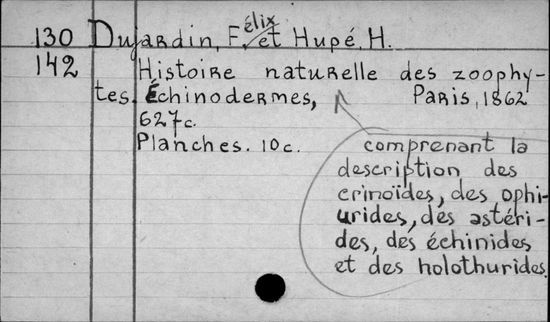 130 Dujardin, Félix et Hupé, H.
142 Histoire naturelle des zoophy-
tes. Échinodermes, Paris, 1862
627c.
Planches. 10c.
comprenant la
description des
crinoïdes, des ophi-
urides, des astéri-
des, des échinides
et des holothurides.